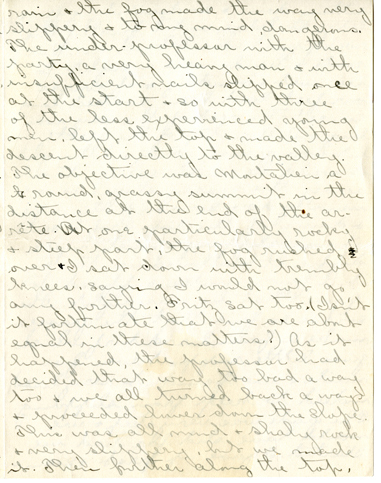 rain & the fog made the way very
slippery & to my mind, dangerous.
The under-professor with the
party, a very heavy man & with
insufficient nails slipped once
at the start & so with three
of the less experienced young
men, left the top & made the
descent directly to the valley.
The objective was Montalien a
round, grassy summit in the
distance at this end of the ar-
ete. At one particularly rocky
& steep part, the fog rushed
over & I sat down with trembly
knees, saying I would not go
any further. Fritz sat too. (Is it
it fortunate that we are about
equal in these matters?) As it
happened, the professor had
decided that way too bad a way
too & we all turned back a ways
& proceeded lower down the slope.
This was all mud & shaly rock
& very slippery, but we made
it. Then further along the top,